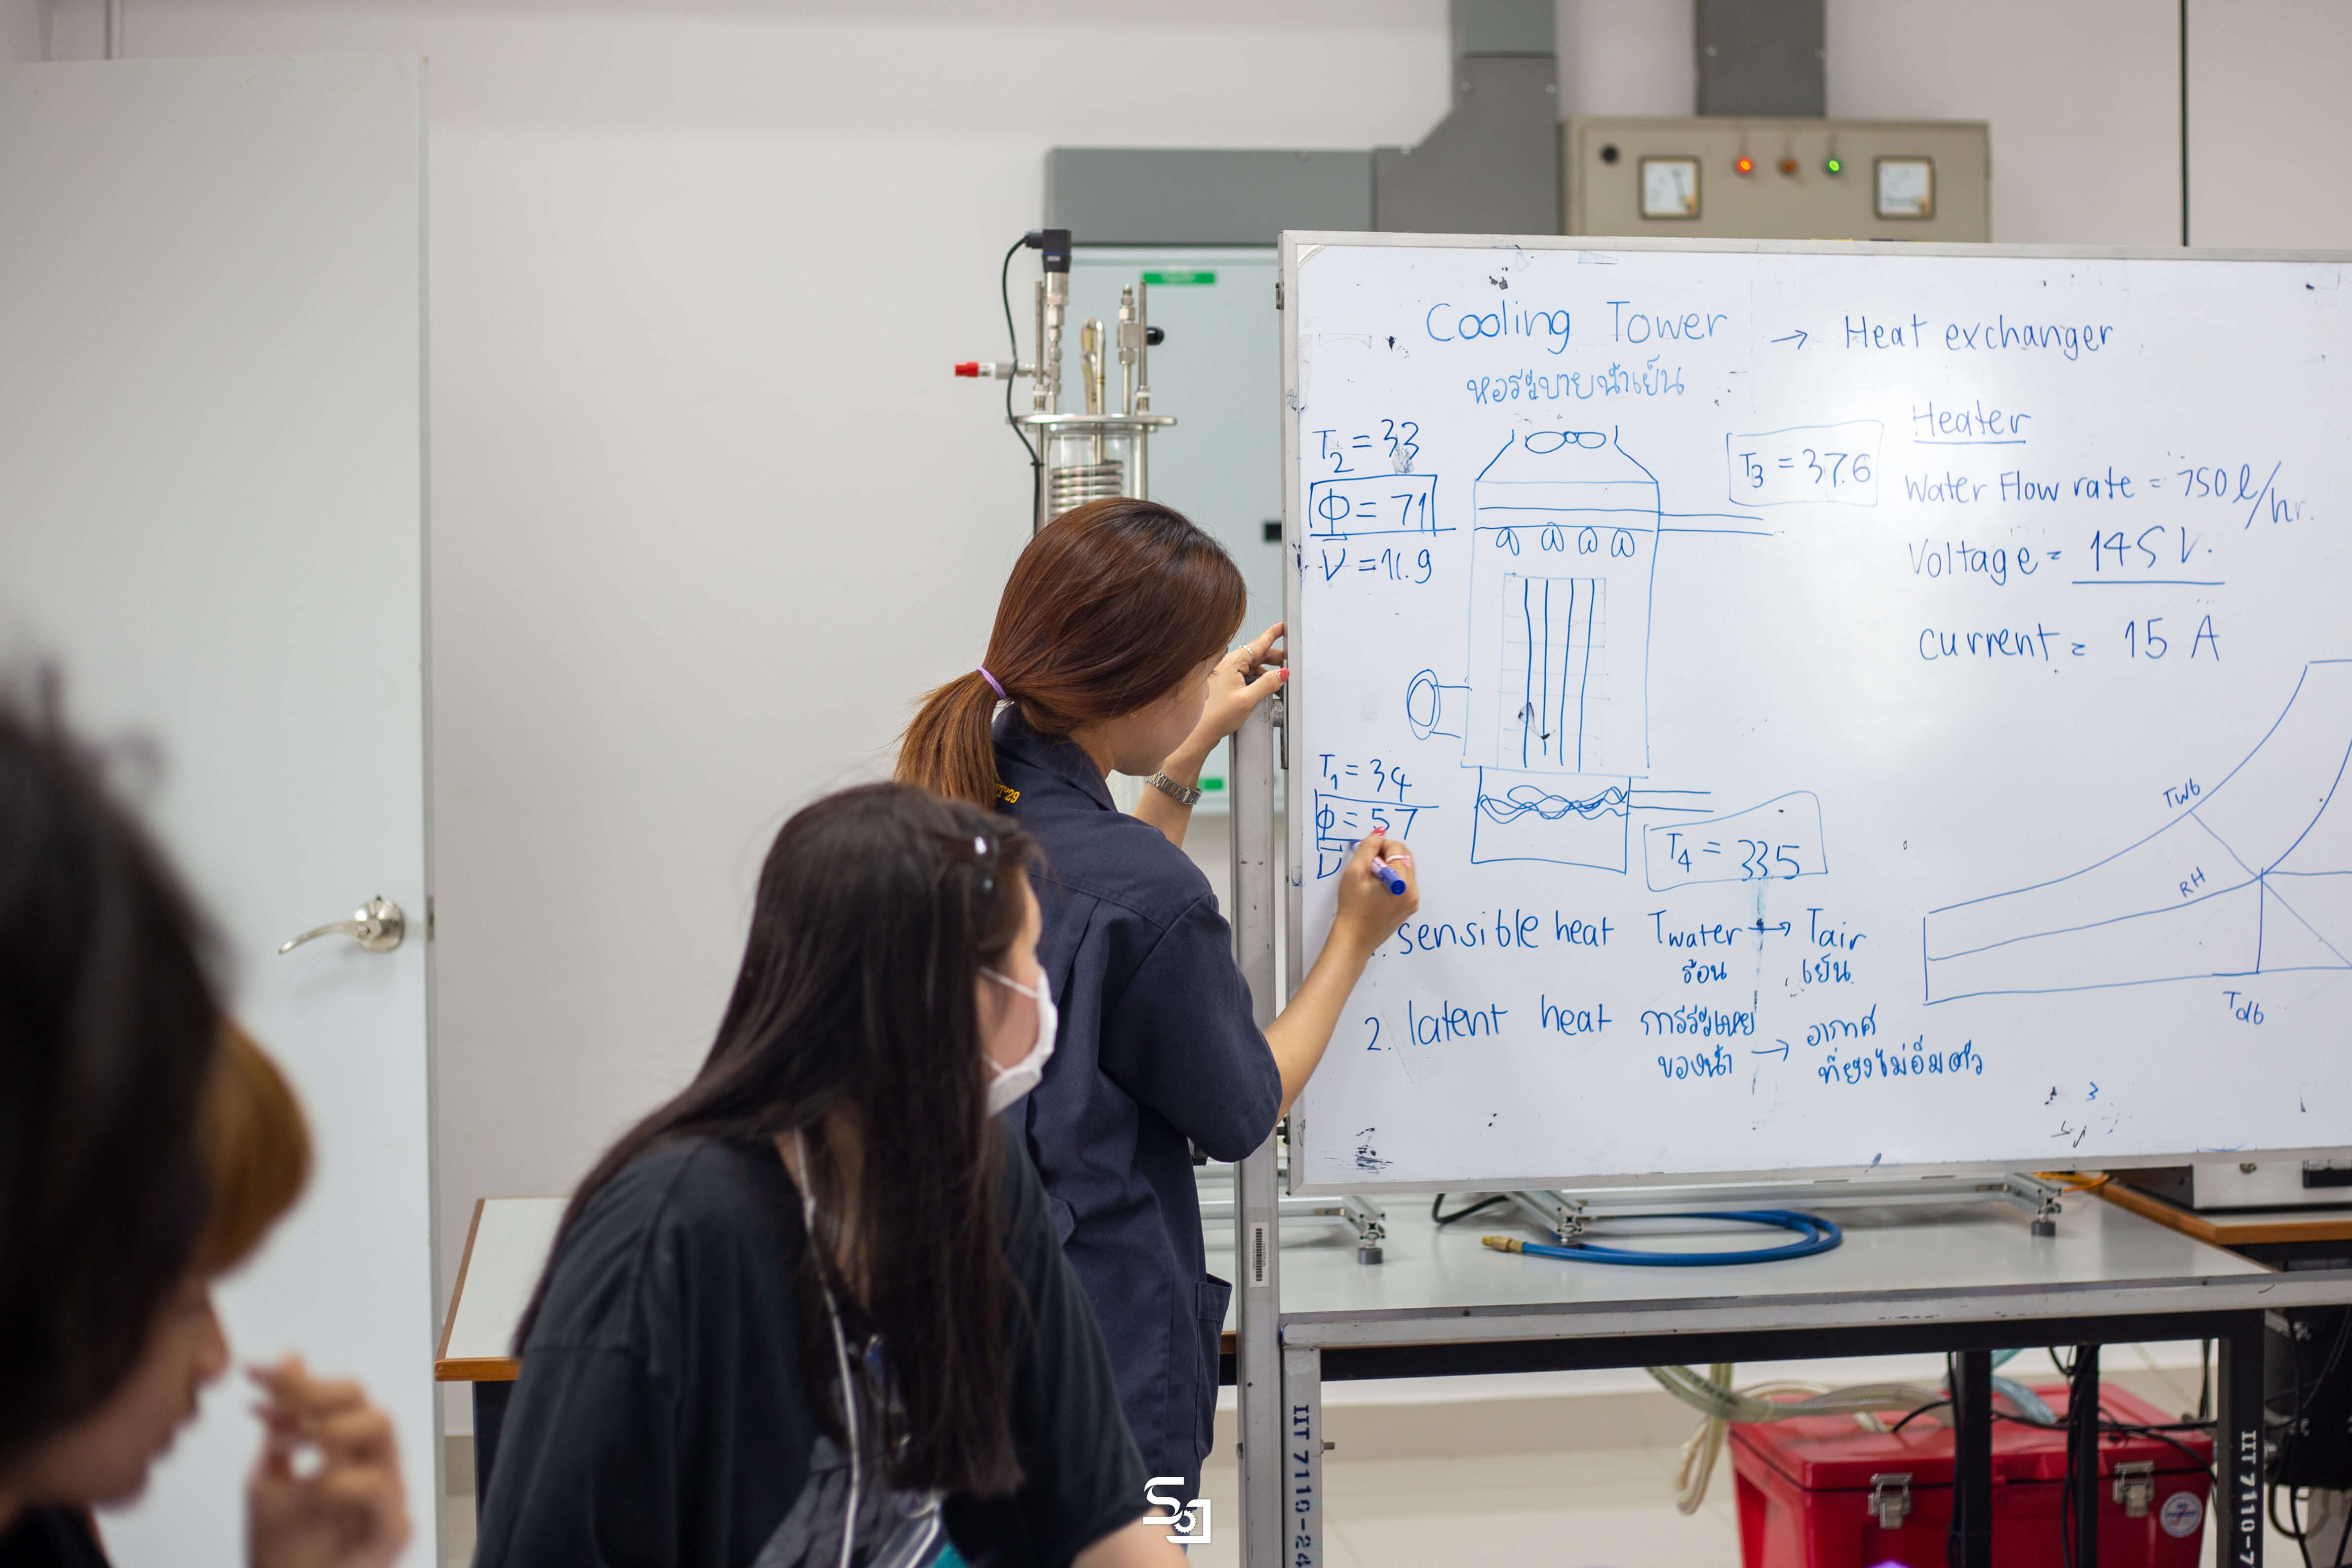 Cooling Tower → Heat exchanger
หอระบายน้ำเย็น
T2 = 33
Φ = 71
V = 11.9
T3 = 37.6
Heater
Water Flow rate = 750 l/hr.
Voltage = 145 V.
current = 15 A
T1 = 34
Φ = 57
T4 = 33.5
Twb
RH
Tdb
1. sensible heat Twater → Tair
ร้อน เย็น
2. latent heat การระเหย → อากาศ
ของน้ำ ที่ยังไม่อิ่มตัว
3
IIT 7110-24
IIT 7110-7